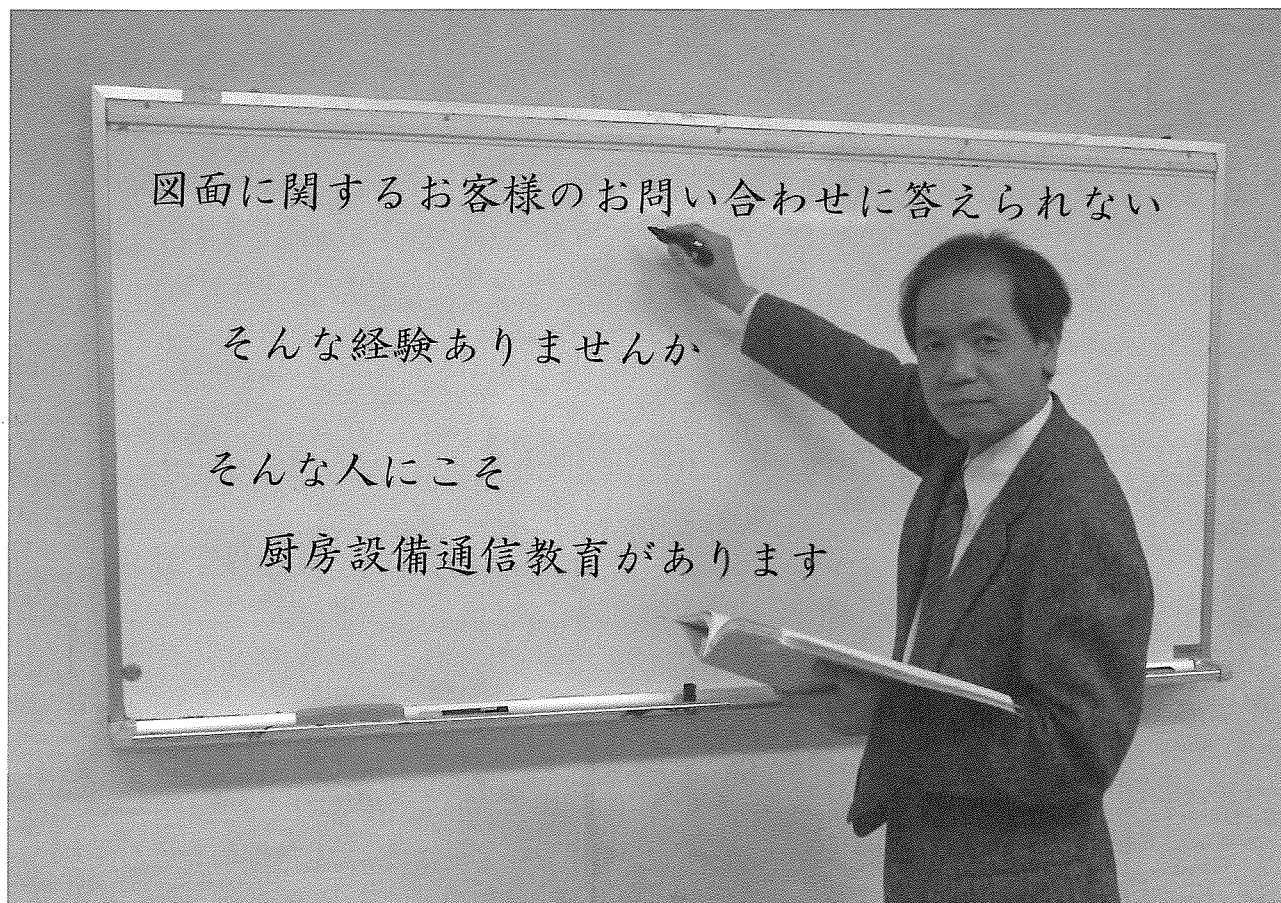 図面に関するお客様のお問い合わせに答えられない
そんな経験ありませんか
そんな人にこそ
厨房設備通信教育があります